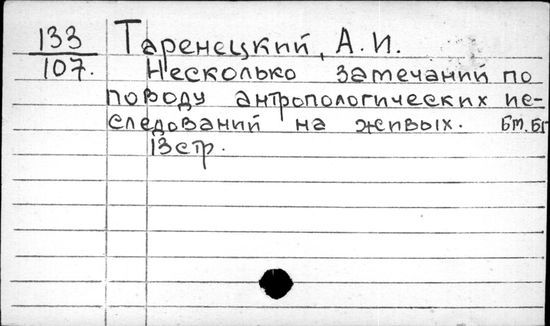 133 Таренецкий, А. И.
107. Несколько замечаний по
поводу антропологических ис-
следований на живых. Бт. Бг
13 стр.